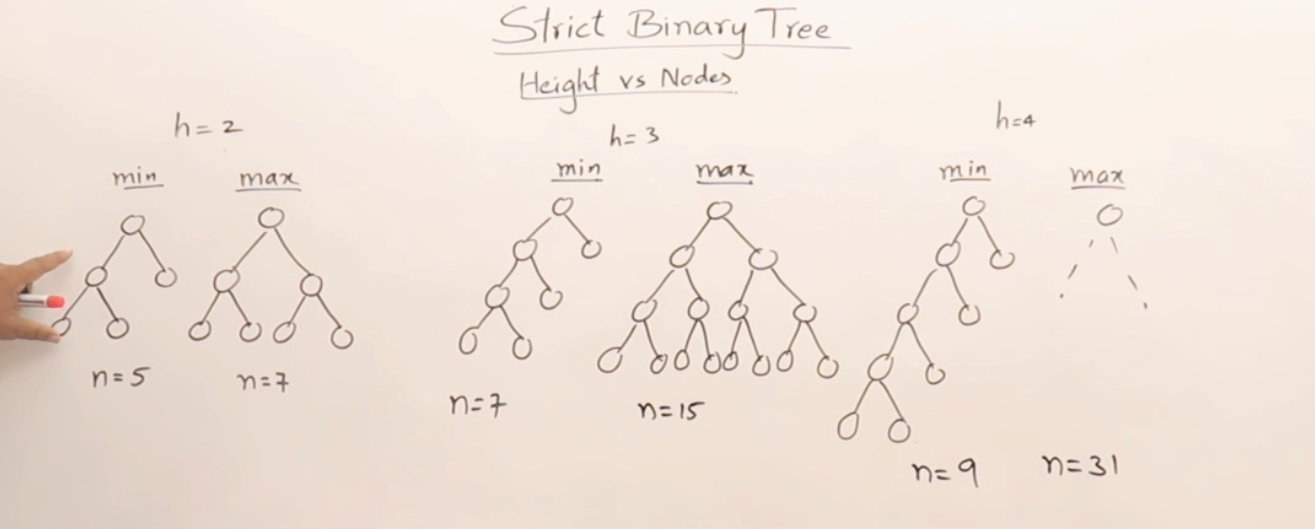 Strict Binary Tree
Height vs Nodes
h=2
min max
n=5 n=7
h=3
min max
n=7 n=15
h=4
min max
n=9 n=31